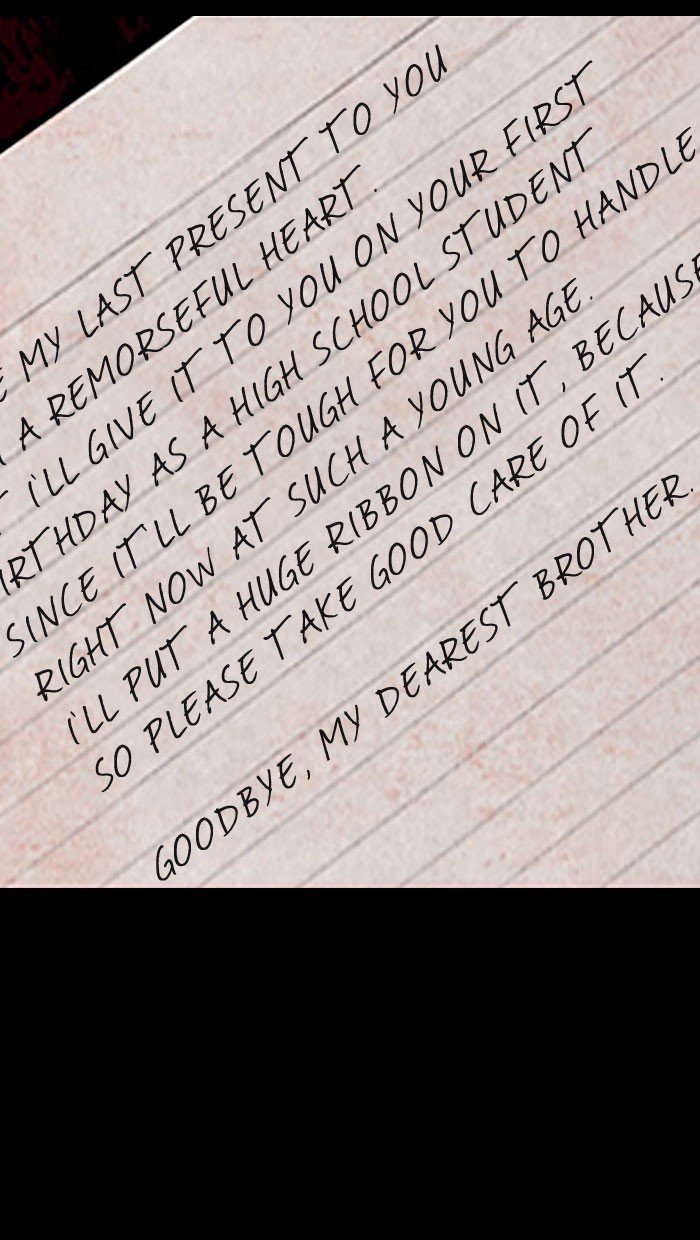 MY LAST PRESENT TO YOU
A REMORSEFUL HEART.
I'LL GIVE IT TO YOU ON YOUR FIRST
AS A HIGH SCHOOL STUDENT
SINCE IT'LL BE TOUGH FOR YOU TO HANDLE
RIGHT NOW AT SUCH A YOUNG AGE.
I'LL PUT A HUGE RIBBON ON IT, BECAUSE
SO PLEASE TAKE GOOD CARE OF IT.
GOODBYE, MY DEAREST BROTHER.